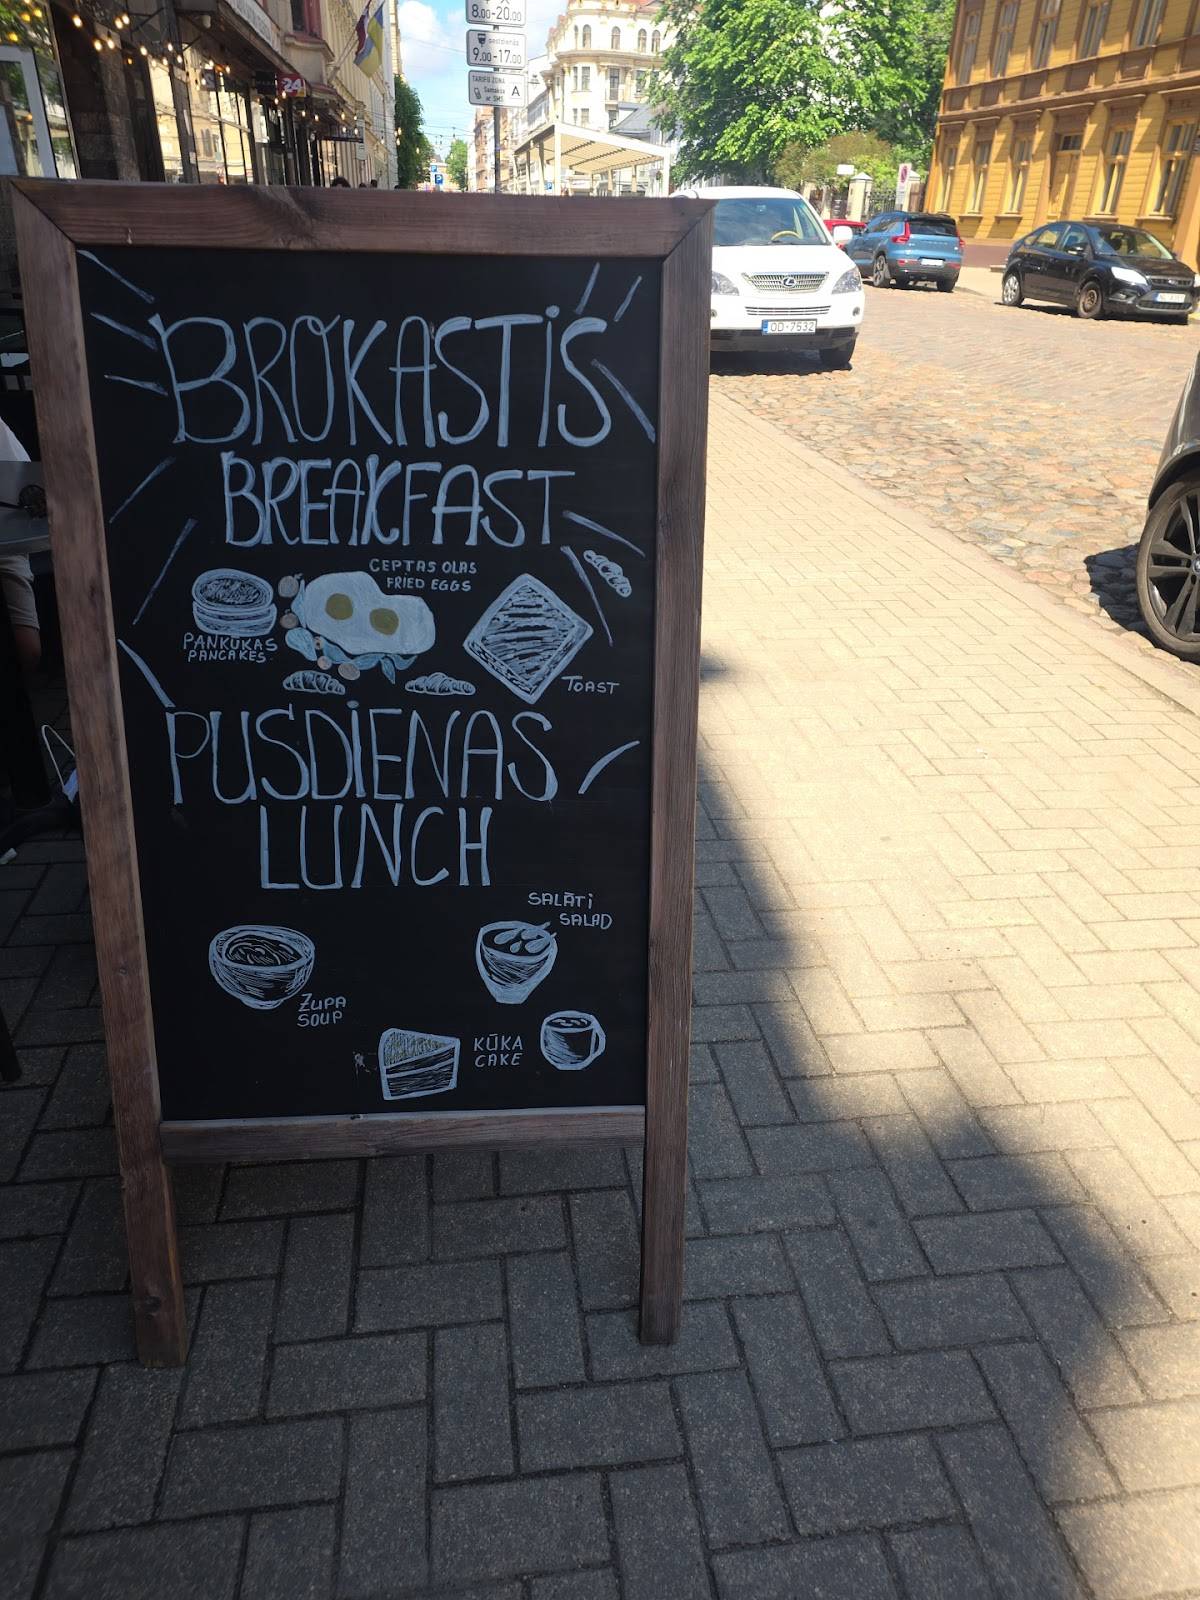 8.00-20.00
9.00-17.00
TARIFU ZONA
A
24
P
BROKASTIŠ
BREAKFAST
CEPTAS OLAS
FRIED EGGS
PANKUKAS
PANCAKES
TOAST
PUSDIENAS
LUNCH
SALĀTI
SALAD
ZUPA
SOUP
KŪKA
CAKE
OD-7532